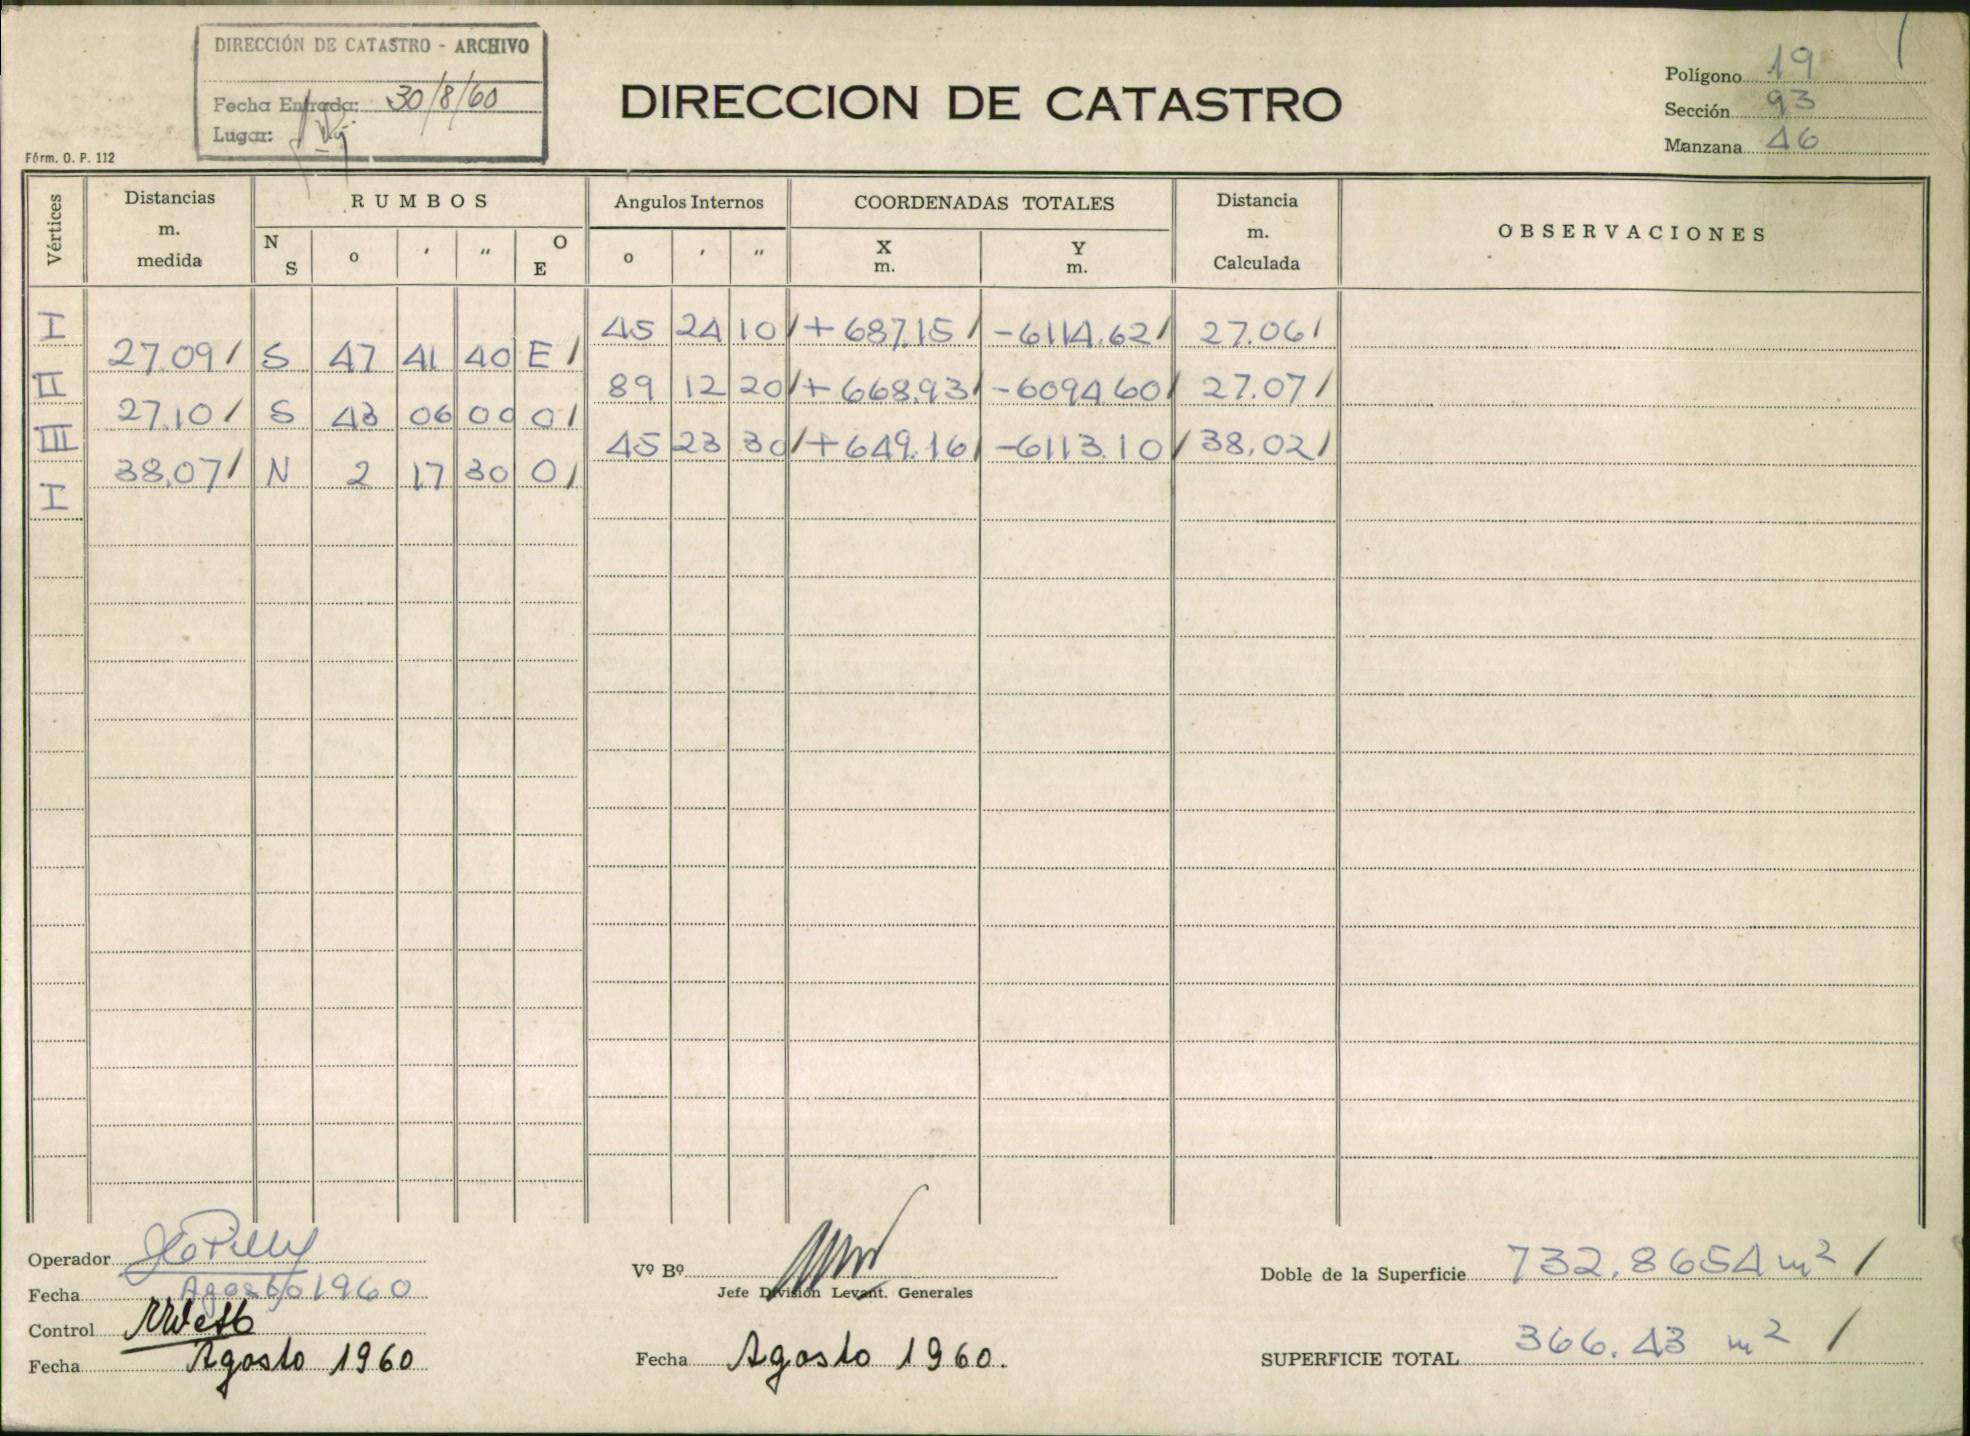 DIRECCIÓN DE CATASTRO - ARCHIVO
Fecha Entrada: 30/8/60
Lugar:
Fórm. O. P. 112
DIRECCION DE CATASTRO
Polígono 19
Sección 93
Manzana 46
Vértices
Distancias m. medida
RUMBOS
Angulos Internos
COORDENADAS TOTALES
Distancia m. Calculada
OBSERVACIONES
N S o ′ ″ O E
o ′ ″
X m.
Y m.
I 45 24 10 / + 687.15 / -6114.62 / 27.06 /
27.09 / S 47 41 40 E /
II 89 12 20 / + 668.93 / -6094.60 / 27.07 /
27.10 / S 43 06 00 O /
III 45 23 30 / + 649.16 / -6113.10 / 38.02 /
38.07 / N 2 17 30 O /
I
Operador
Fecha Agosto 1960
Control
Fecha Agosto 1960
Vº Bº
Jefe División Levant. Generales
Fecha Agosto 1960.
Doble de la Superficie 732.8654 m² /
SUPERFICIE TOTAL 366.43 m² /